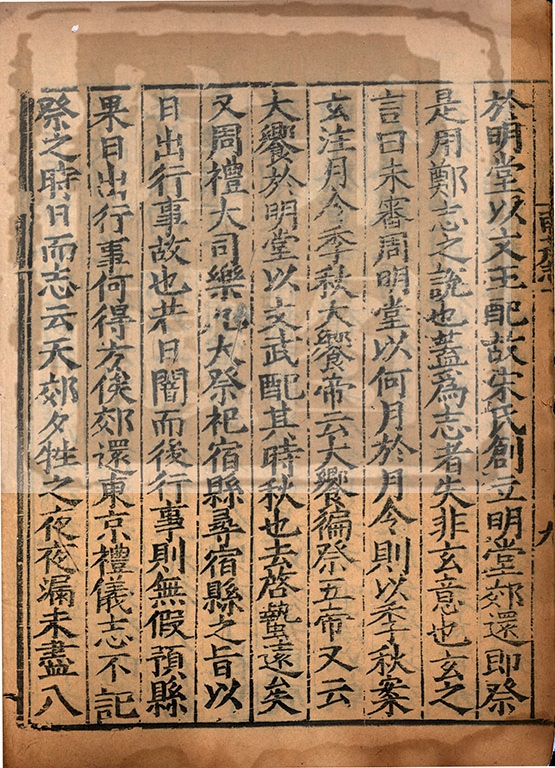 於明堂以文王配故宋氏創立明堂郊還即祭
是用鄭志之說也蓋為志者失非玄意也玄之
言曰未審周明堂以何月於月令則以季秋案
玄注月令季秋大饗帝云大饗徧祭五帝又云
大饗於明堂以文武配其時秋也去啓蟄遠矣
又周禮大司樂凡大祭祀宿縣尋宿縣之旨以
日出行事故也若日闇而後行事則無假預縣
果日出行事何得方俟郊還東京禮儀志不記
祭之時日而志云天郊夕牲之夜夜漏未盡八